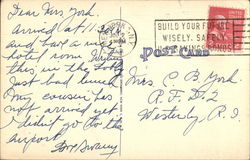 Dear Mrs York.
Arrived at 11:30
and have a nice
hotel room. Writing
this in bed
just had lunch
My cousin has
not arrived yet
didn't go to the
airport.
BUILD YOUR FUTURE
WISELY, SAFELY,
SAVINGS BONDS
POST CARD
Mrs C B York
R. F. D. 2
Westerly R. I.